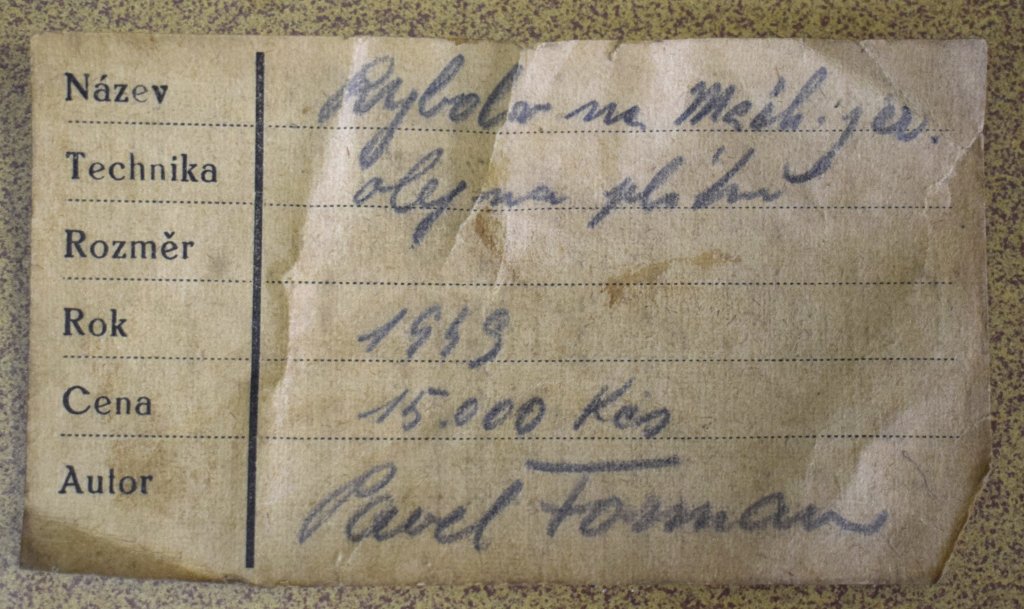 Název Rybolov na Mách. jez.
Technika olej na plátně
Rozměr
Rok 1949
Cena 15.000 Kčs
Autor Pavel Forman